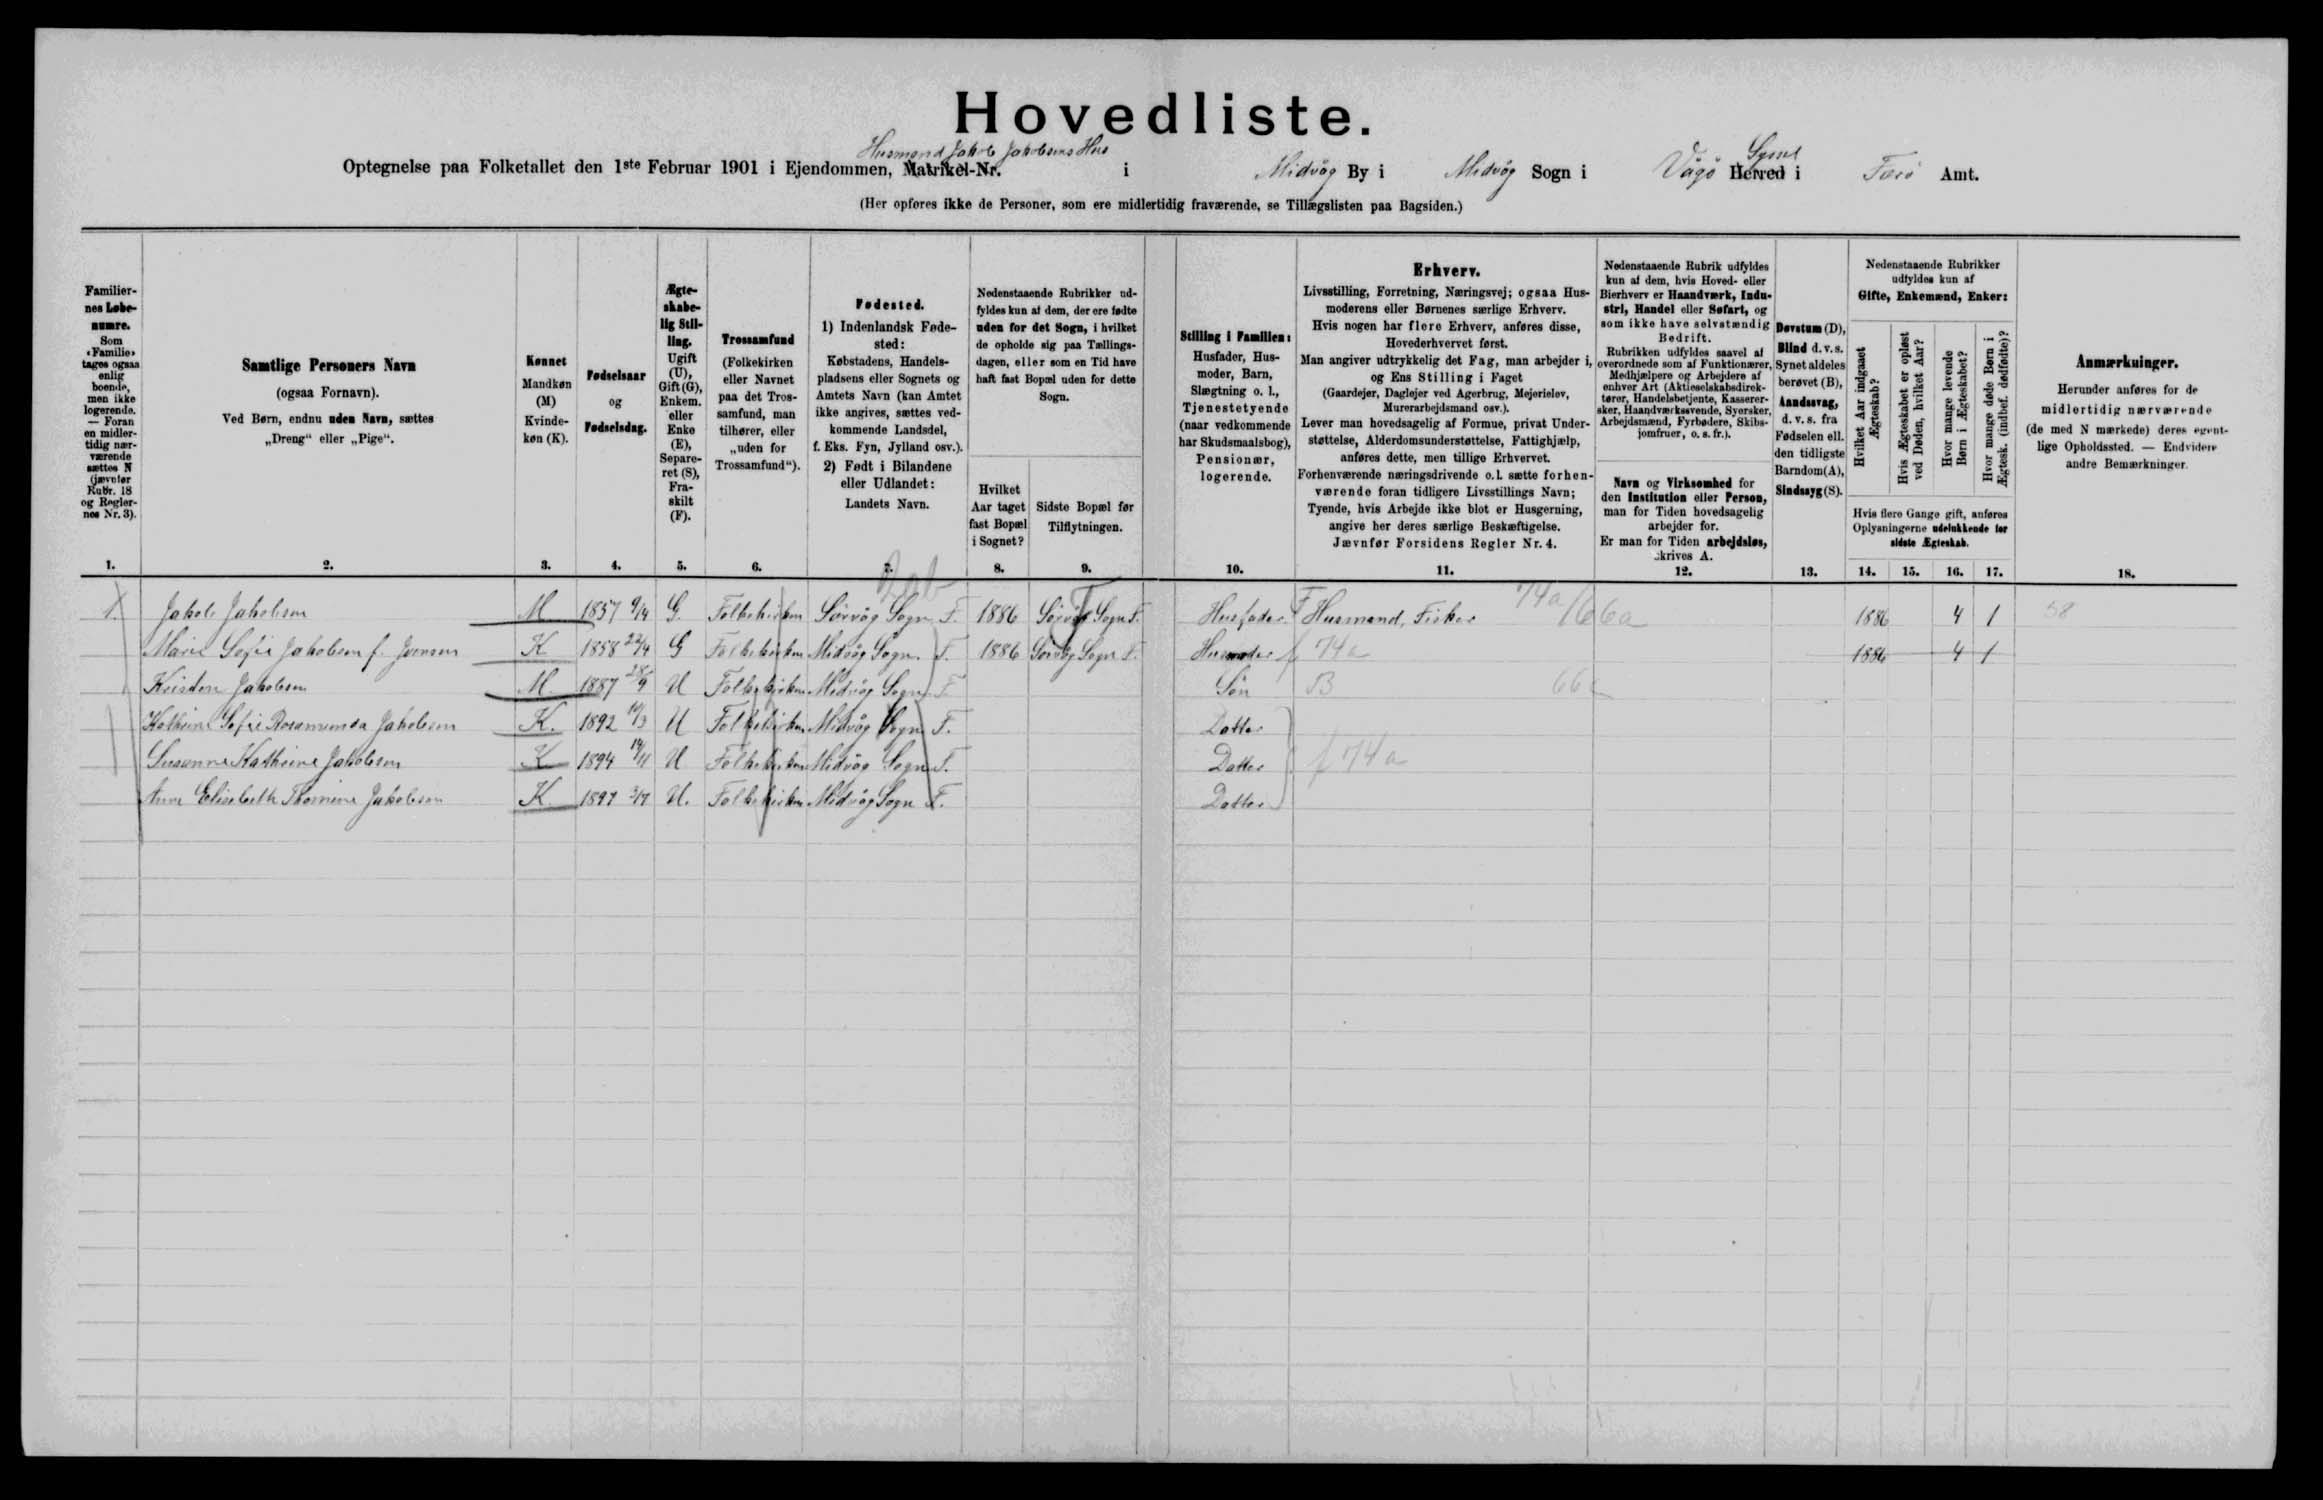 Hovedliste.
Husmand Jakob Jakobsens Hus
Optegnelse paa Folketallet den 1ste Februar 1901 i Ejendommen, Matrikel-Nr. i Midvåg By i Midvåg Sogn i Vågø Herred Syssel i Færø Amt.
(Her opføres ikke de Personer, som ere midlertidig fraværende, se Tillægslisten paa Bagsiden.)
Familiernes Løbenumre.
Som «Familie» tages ogsaa enlig boende, men ikke logerende. — Foran en midlertidig nærværende sættes N (jævnfør Rubr. 18 og Reglernes Nr. 3).
Samtlige Personers Navn
(ogsaa Fornavn).
Ved Børn, endnu uden Navn, sættes
„Dreng“ eller „Pige“.
Kønnet
Mandkøn (M)
Kvindekøn (K).
Fødselsaar
og
Fødselsdag.
Ægteskabelig Stilling.
Ugift (U), Gift (G), Enkem. eller Enke (E), Separeret (S), Fraskilt (F).
Trossamfund
(Folkekirken eller Navnet paa det Trossamfund, man tilhører, eller „uden for Trossamfund“).
Fødested.
1) Indenlandsk Fødested:
Købstadens, Handelspladsens eller Sognets og Amtets Navn (kan Amtet ikke angives, sættes vedkommende Landsdel, f. Eks. Fyn, Jylland osv.).
2) Født i Bilandene eller Udlandet:
Landets Navn.
Nedenstaaende Rubrikker udfyldes kun af dem, der ere fødte uden for det Sogn, i hvilket de opholde sig paa Tællingsdagen, eller som en Tid have haft fast Bopæl uden for dette Sogn.
Hvilket Aar taget fast Bopæl i Sognet?
Sidste Bopæl før Tilflytningen.
Stilling i Familien:
Husfader, Husmoder, Barn, Slægtning o. l., Tjenestetyende (naar vedkommende har Skudsmaalsbog), Pensionær, logerende.
Erhverv.
Livsstilling, Forretning, Næringsvej; ogsaa Husmoderens eller Børnenes særlige Erhverv.
Hvis nogen har flere Erhverv, anføres disse, Hovederhvervet først.
Man angiver udtrykkelig det Fag, man arbejder i, og Ens Stilling i Faget
(Gaardejer, Daglejer ved Agerbrug, Mejerielev, Murerarbejdsmand osv.).
Lever man hovedsagelig af Formue, privat Understøttelse, Alderdomsunderstøttelse, Fattighjælp, anføres dette, men tillige Erhvervet.
Forhenværende næringsdrivende o.l. sætte forhenværende foran tidligere Livsstillings Navn;
Tyende, hvis Arbejde ikke blot er Husgerning, angive her deres særlige Beskæftigelse.
Jævnfør Forsidens Regler Nr. 4.
Nedenstaaende Rubrik udfyldes kun af dem, hvis Hoved- eller Bierhverv er Haandværk, Industri, Handel eller Søfart, og som ikke have selvstændig Bedrift.
Rubrikken udfyldes saavel af overordnede som af Funktionærer, Medhjælpere og Arbejdere af enhver Art (Aktieselskabsdirektører, Handelsbetjente, Kasserersker, Haandværkssvende, Syersker, Arbejdsmænd, Fyrbødere, Skibsjomfruer, o. s. fr.).
Navn og Virksomhed for den Institution eller Person, man for Tiden hovedsagelig arbejder for.
Er man for Tiden arbejdsløs, skrives A.
Døvstum (D), Blind d. v. s. Synet aldeles berøvet (B), Aandssvag, d. v. s. fra Fødselen ell. den tidligste Barndom (A), Sindssyg (S).
Nedenstaaende Rubrikker udfyldes kun af
Gifte, Enkemænd, Enker:
Hvilket Aar indgaaet Ægteskab?
Hvis Ægteskabet er opløst ved Døden, hvilket Aar?
Hvor mange levende Børn i Ægteskabet?
Hvor mange døde Børn i Ægtesk. (indbef. dødfødte)?
Hvis flere Gange gift, anføres Oplysningerne udelukkende for sidste Ægteskab.
Anmærkninger.
Herunder anføres for de midlertidig nærværende (de med N mærkede) deres egentlige Opholdssted. — Endvidere andre Bemærkninger.
1. 2. 3. 4. 5. 6. 7. 8. 9. 10. 11. 12. 13. 14. 15. 16. 17. 18.
1. Jakob Jakobsen M. 1857 9/4 G. Folkekirken Sørvåg Sogn F. 1886 Sørvåg Sogn F. Husfader F Husmand, Fisker 74a/66a 1886 4 1 38
Marie Sofie Jakobsen f. Joensen K 1858 22/4 G Folkekirken Midvåg Sogn. F. 1886 Sørvåg Sogn F. Husmoder f 74a 1886 4 1
Kristen Jakobsen M. 1887 28/9 U Folkekirken Midvåg Sogn F Søn B 66
Kathrine Sofie Rosamunda Jakobsen K. 1892 10/3 U Folkekirken Midvåg Sogn F. Datter
Susanne Kathrine Jakobsen K 1894 14/11 U Folkekirken Midvåg Sogn F. Datter f 74a
Anne Elisabeth Thomine Jakobsen K 1897 3/7 U. Folkekirken Midvåg Sogn F. Datter